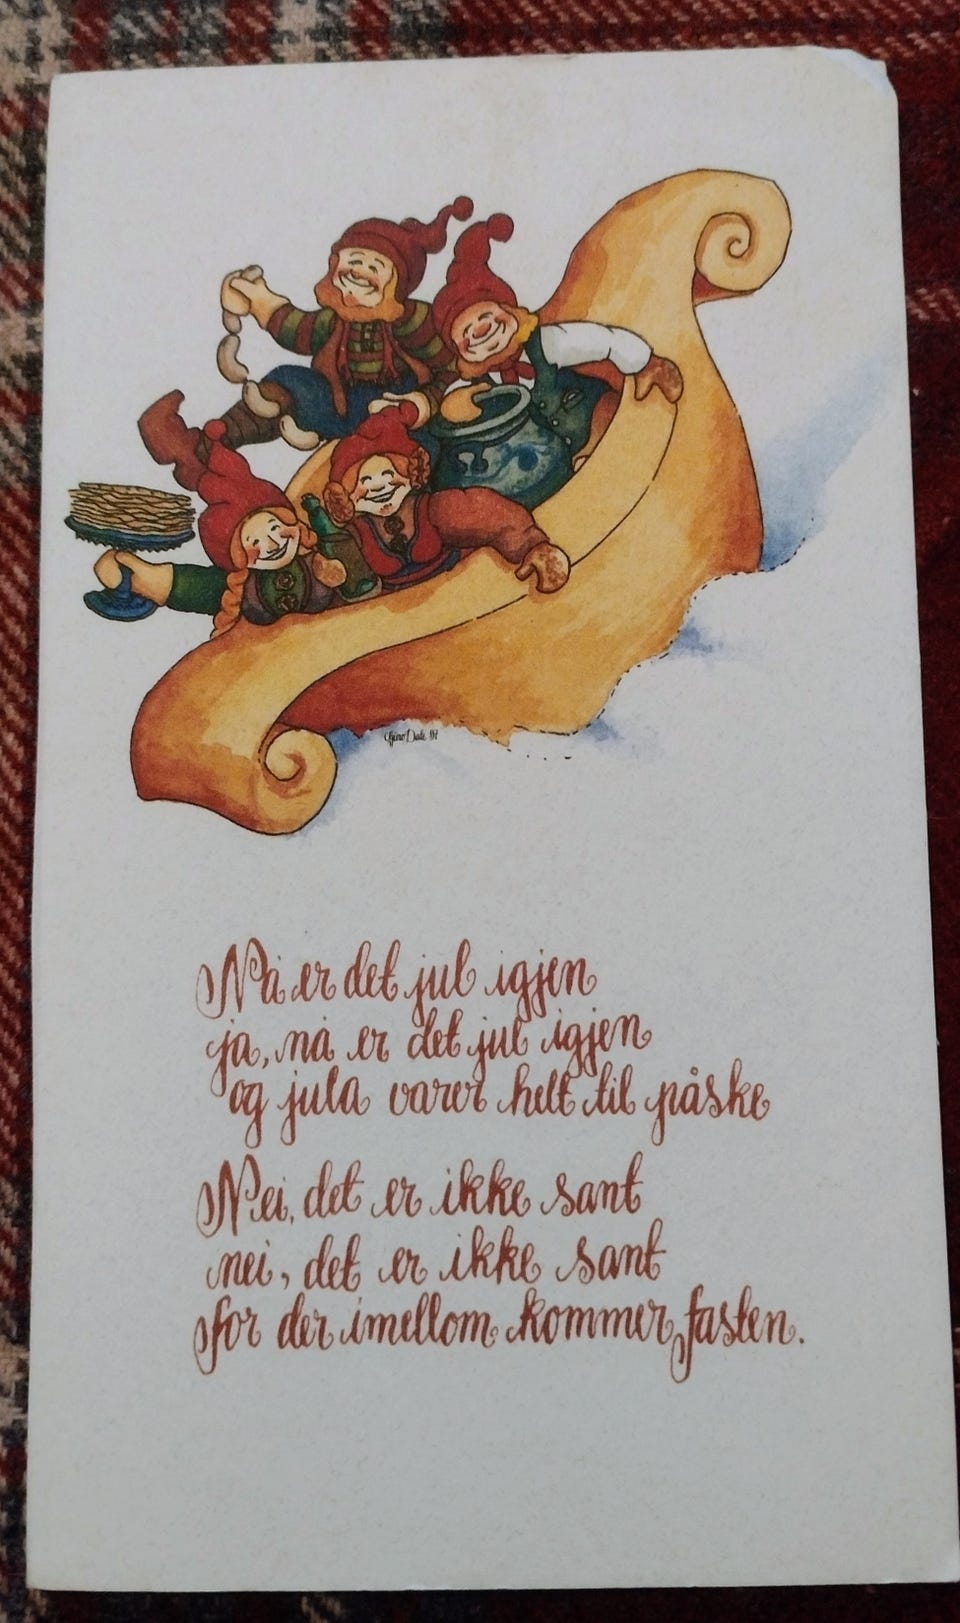 Nå er det jul igjen
ja, nå er det jul igjen
og jula varer helt til påske
Nei, det er ikke sant
nei, det er ikke sant
for der imellom kommer fasten.